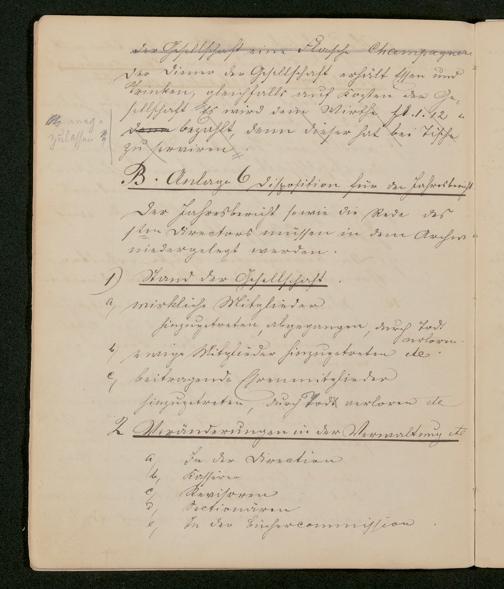 der Gesellschaft eine Flasche Champagner
Der Diener der Gesellschaft erhält Essen und
Trinken, gleichfalls auf Kosten der Ge-
sellschaft Es wird dem Wirthe fl. 1. 12
dann bezahlt, denn dieser hat bei Tische
zu serviren
zulassen
B. Anlage 6 Disposition für den Jahresbericht
Der Jahresbericht sowie die Rede des
1sten Directors müssen in dem Archiv
niedergelegt werden.
1) Stand der Gesellschaft.
a, wirkliche Mitglieder
hinzugetreten, abgegangen, durch Tod
verloren.
b, ewige Mitglieder hinzugetreten etc.
c, beitragende Ehrenmitglieder
hinzugetreten, durch Todt verloren etc
2 Veränderungen in der Verwaltung etc
a, In der Direction
b, Kassirer
c, Revisoren
d, Sectionären
e, In der Büchercommission.